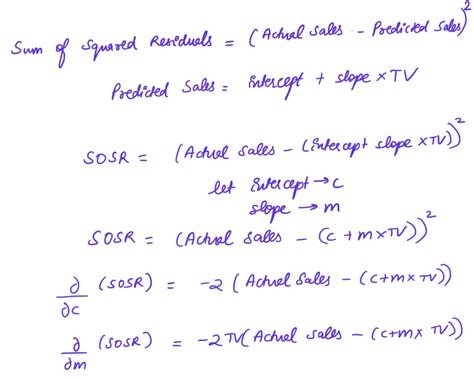 Sum of Squared Residuals = (Actual Sales - Predicted Sales)²
Predicted Sales = intercept + slope × TV
SOSR = (Actual Sales - (intercept slope × TV))²
let intercept → c
slope → m
SOSR = (Actual Sales - (c + m × TV))²
∂/∂c (SOSR) = -2 (Actual Sales - (c+m× TV))
∂/∂m (SOSR) = -2TV(Actual Sales - (c+m× TV))